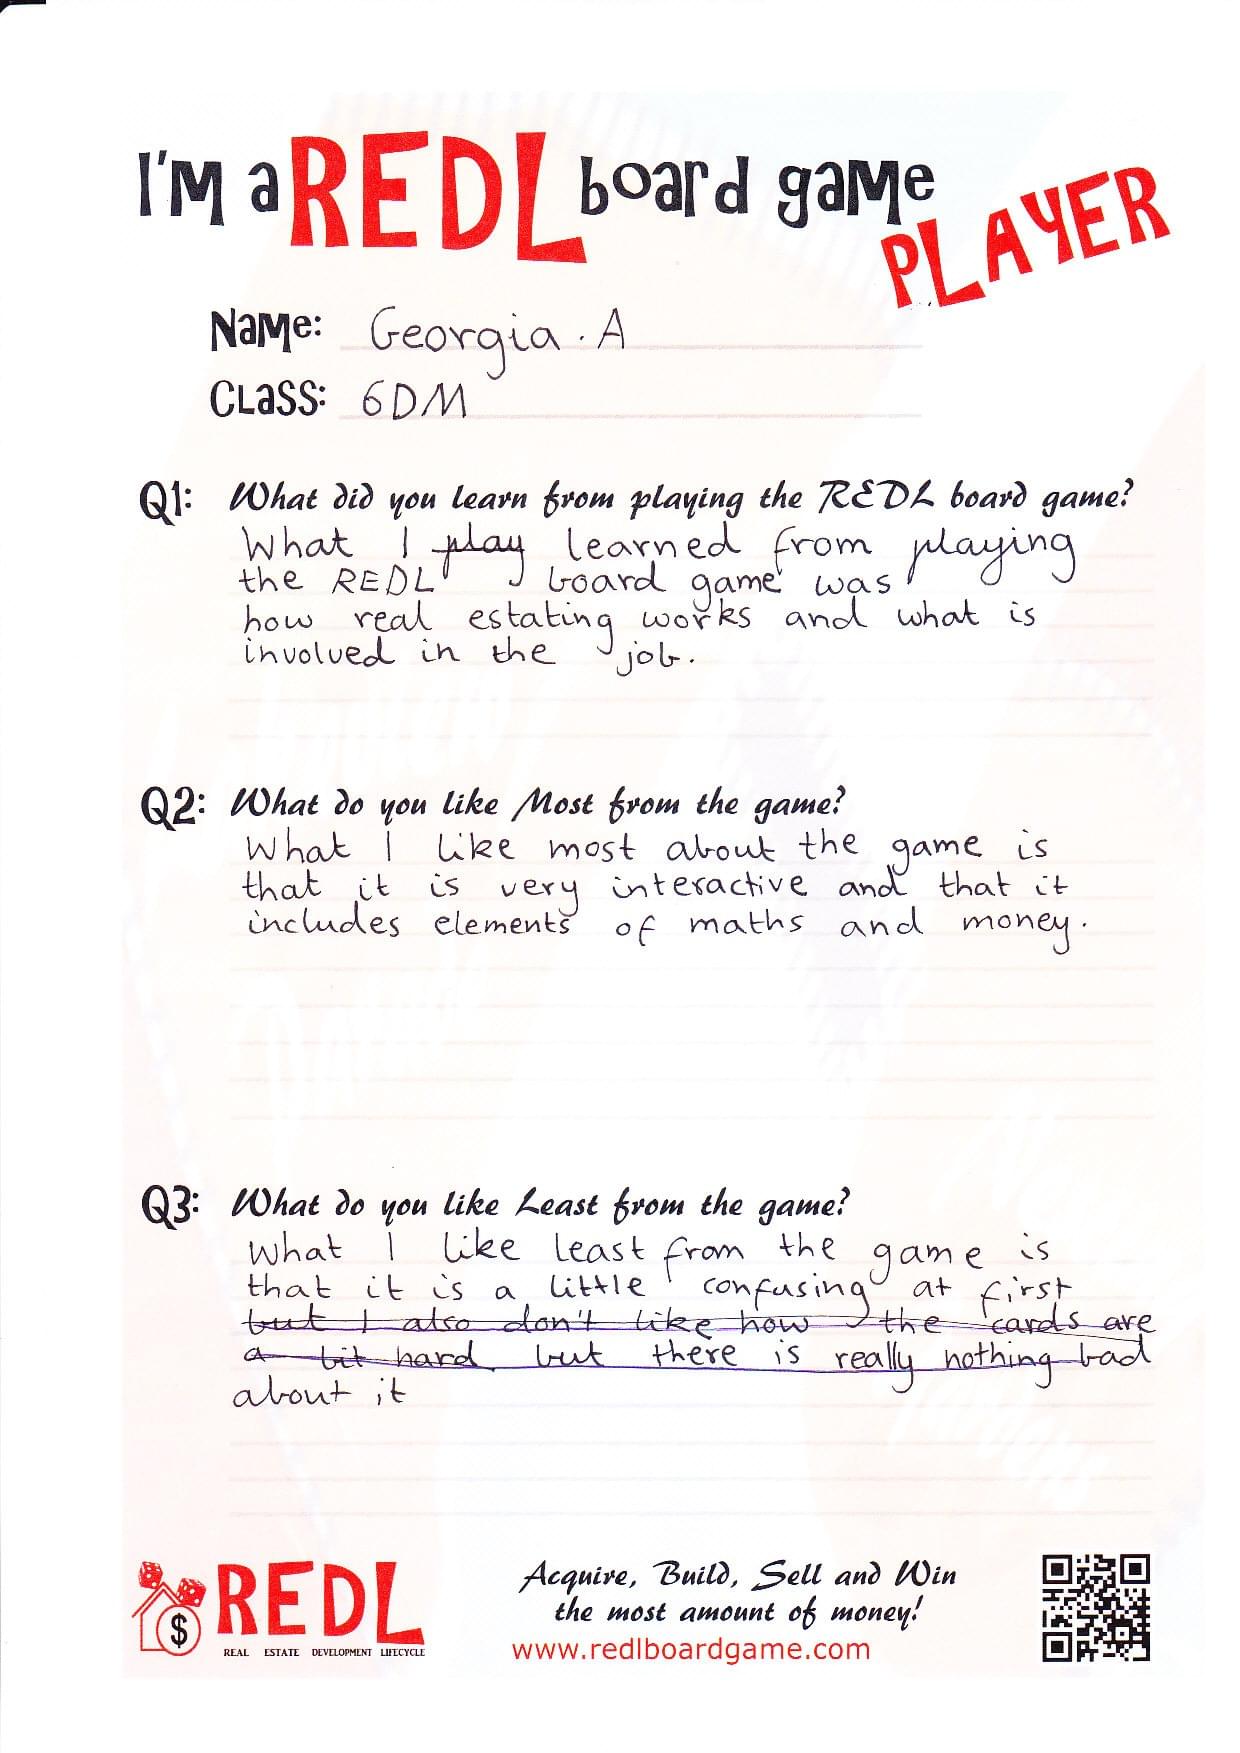 I'M a REDL board game PLAYER
Name: Georgia . A
Class: 6DM
Q1: What did you learn from playing the REDL board game?
What I play learned from playing
the REDL board game was
how real estating works and what is
involved in the job.
Q2: What do you like Most from the game?
What I like most about the game is
that it is very interactive and that it
includes elements of maths and money.
Q3: What do you like Least from the game?
What I like least from the game is
that it is a little confusing at first
but I also don't like how the cards are
a bit hard but there is really nothing bad
about it
REDL
REAL ESTATE DEVELOPMENT LIFECYCLE
Acquire, Build, Sell and Win
the most amount of money!
www.redlboardgame.com